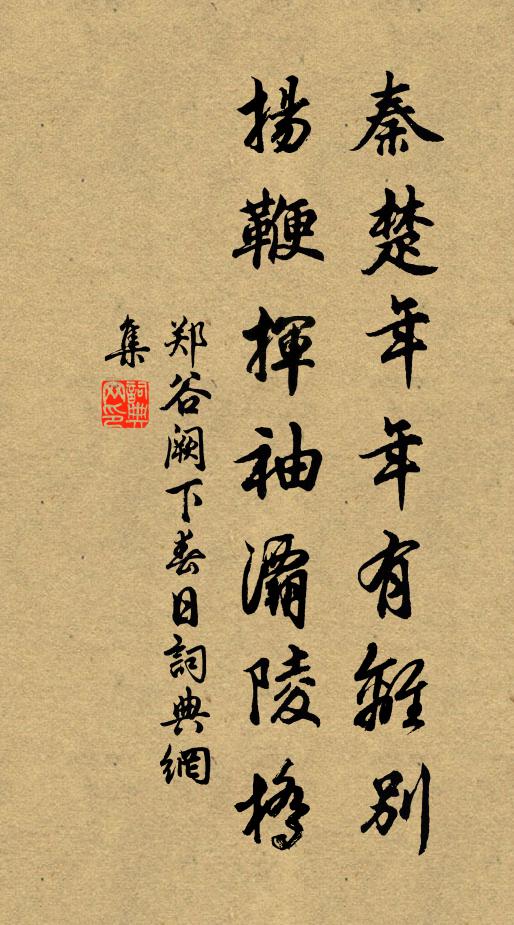 秦楚年年有離別
揚鞭揮袖灞陵橋
郑谷阙下春日詞典網
集
詞典網印